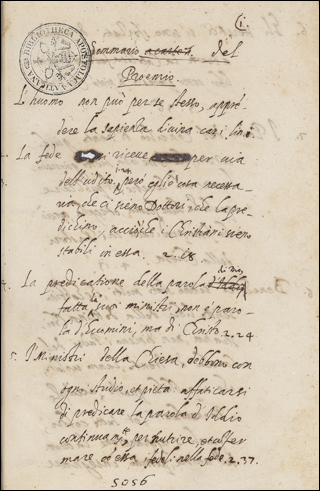 (1.
BIBLIOTHECA APOSTOLICA VATICANA
Sommario a carte 1. del
Proemio.
L'huomo non può per se stesso, appre
dere la sapienza divina. car. 1. lin. e
La fede si riceve per via
dell'udito, però è cosa necessa
ria, che ci sieno Dottori, che la pre
dichino, acciò che i Christiani sieno
stabili in essa. 2. 18
La predicatione della parola d'Iddio
fatta suoi ministri, non è paro
la d'huomini, ma di Christo 2. 24
5. I Ministri della Chiesa, debbono con
ogni studio, et pietà affaticarsi
di predicare la parola d'Iddio
continuamte, per nutrire, et confer
mare essa i fedeli nella fede. 2. 37.
5056